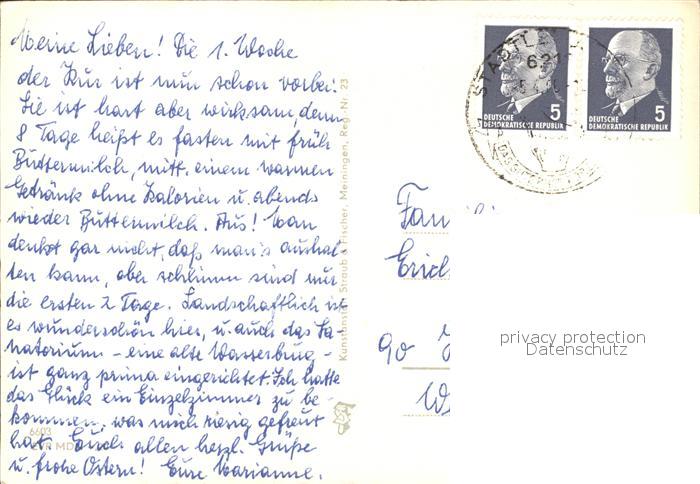 Meine Lieben! Die 1. Woche
der Kur ist nun schon vorbei!
Sie ist hart aber wirksam, denn
8 Tage heißt es fasten mit früh
Buttermilch, mitt. einem warmen
Getränk ohne Kalorien u. abends
wieder Buttermilch. Aus! Man
denkt gar nicht, daß man's aushal-
ten kann, aber schlimm sind nur
die ersten 2 Tage. Landschaftlich ist
es wunderschön hier, u. auch das Sa-
natorium - eine alte Wasserburg -
ist ganz prima eingerichtet. Ich hatte
das Glück ein Einzelzimmer zu be-
kommen, was mich riesig gefreut
hat. Euch allen herzl. Grüße
u. frohe Ostern! Eure Marianne.
6603
Kunstanstalt Straub & Fischer, Meiningen, Reg.-Nr. 23
STADTL
621
5
DEUTSCHE
DEMOKRATISCHE REPUBLIK
5
DEUTSCHE
DEMOKRATISCHE REPUBLIK
Fam
Erich
90 J
W
privacy protection
Datenschutz